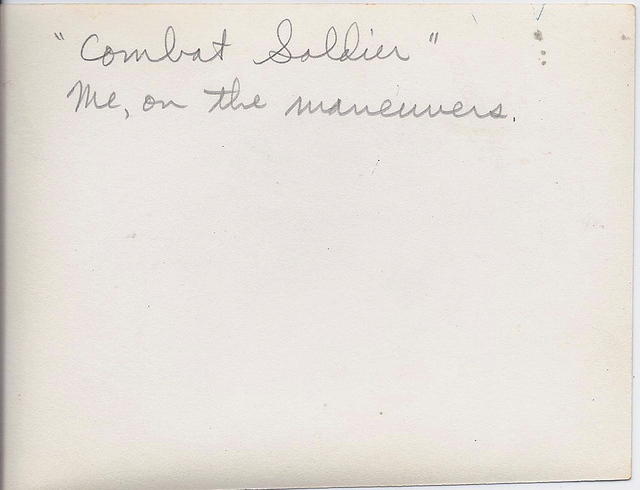 "Combat Soldier"
Me, on the maneuvers.